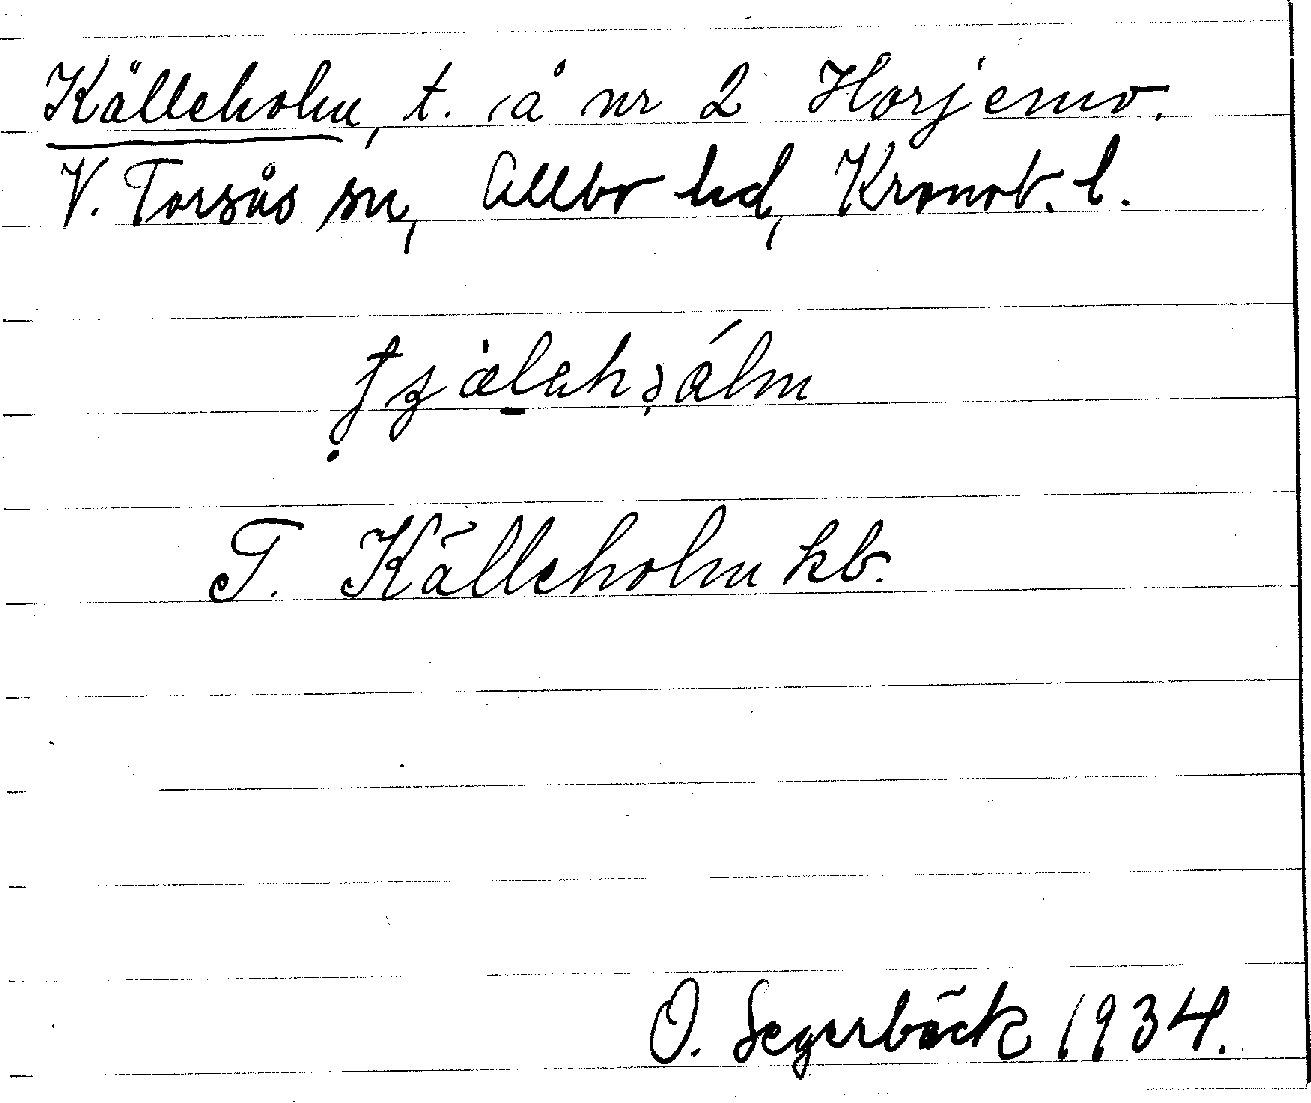 Källeholm, t. å nr 2 Horjemo.
V. Torsås sn, Allbo hd, Kronob. l.
T. Källeholm kb.
O. Segerbäck 1934.